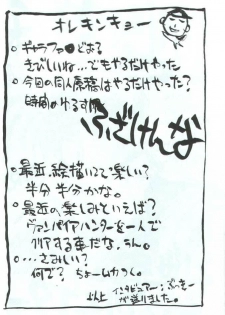 オレキンキュー
○ギャラファ●どおる
きびしいね…でもやるだけやった
○今回の同人原稿はやるだけやった?
時間のゆるす
ふざけんな
○最近、絵描いてて楽しい?
半分半分かな。
○最近の楽しみといえば?
ヴァンパイアハンターを一人で
クリアする事だな、うん。
○…さみしい?
何で? ちょームカつく。
以上 インタビュアー:ぶっちー
が送りました。